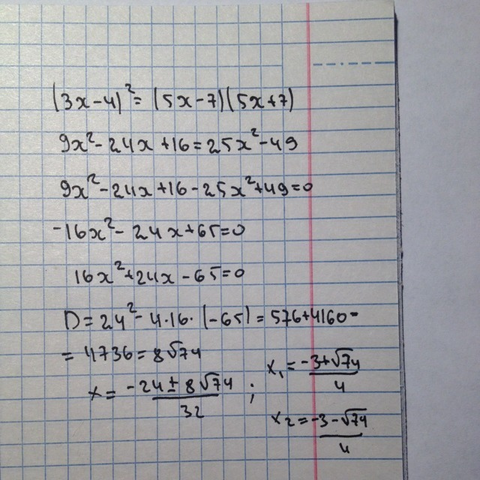 (3x-4)² = (5x-7)(5x+7)
9x²-24x+16=25x²-49
9x²-24x+16-25x²+49=0
-16x²-24x+65=0
16x²+24x-65=0
D=24²-4·16·(-65)=576+4160=
=4736=8√74
x= (-24±8√74)/32 ; x₁=(-3+√74)/4
x₂=(-3-√74)/4